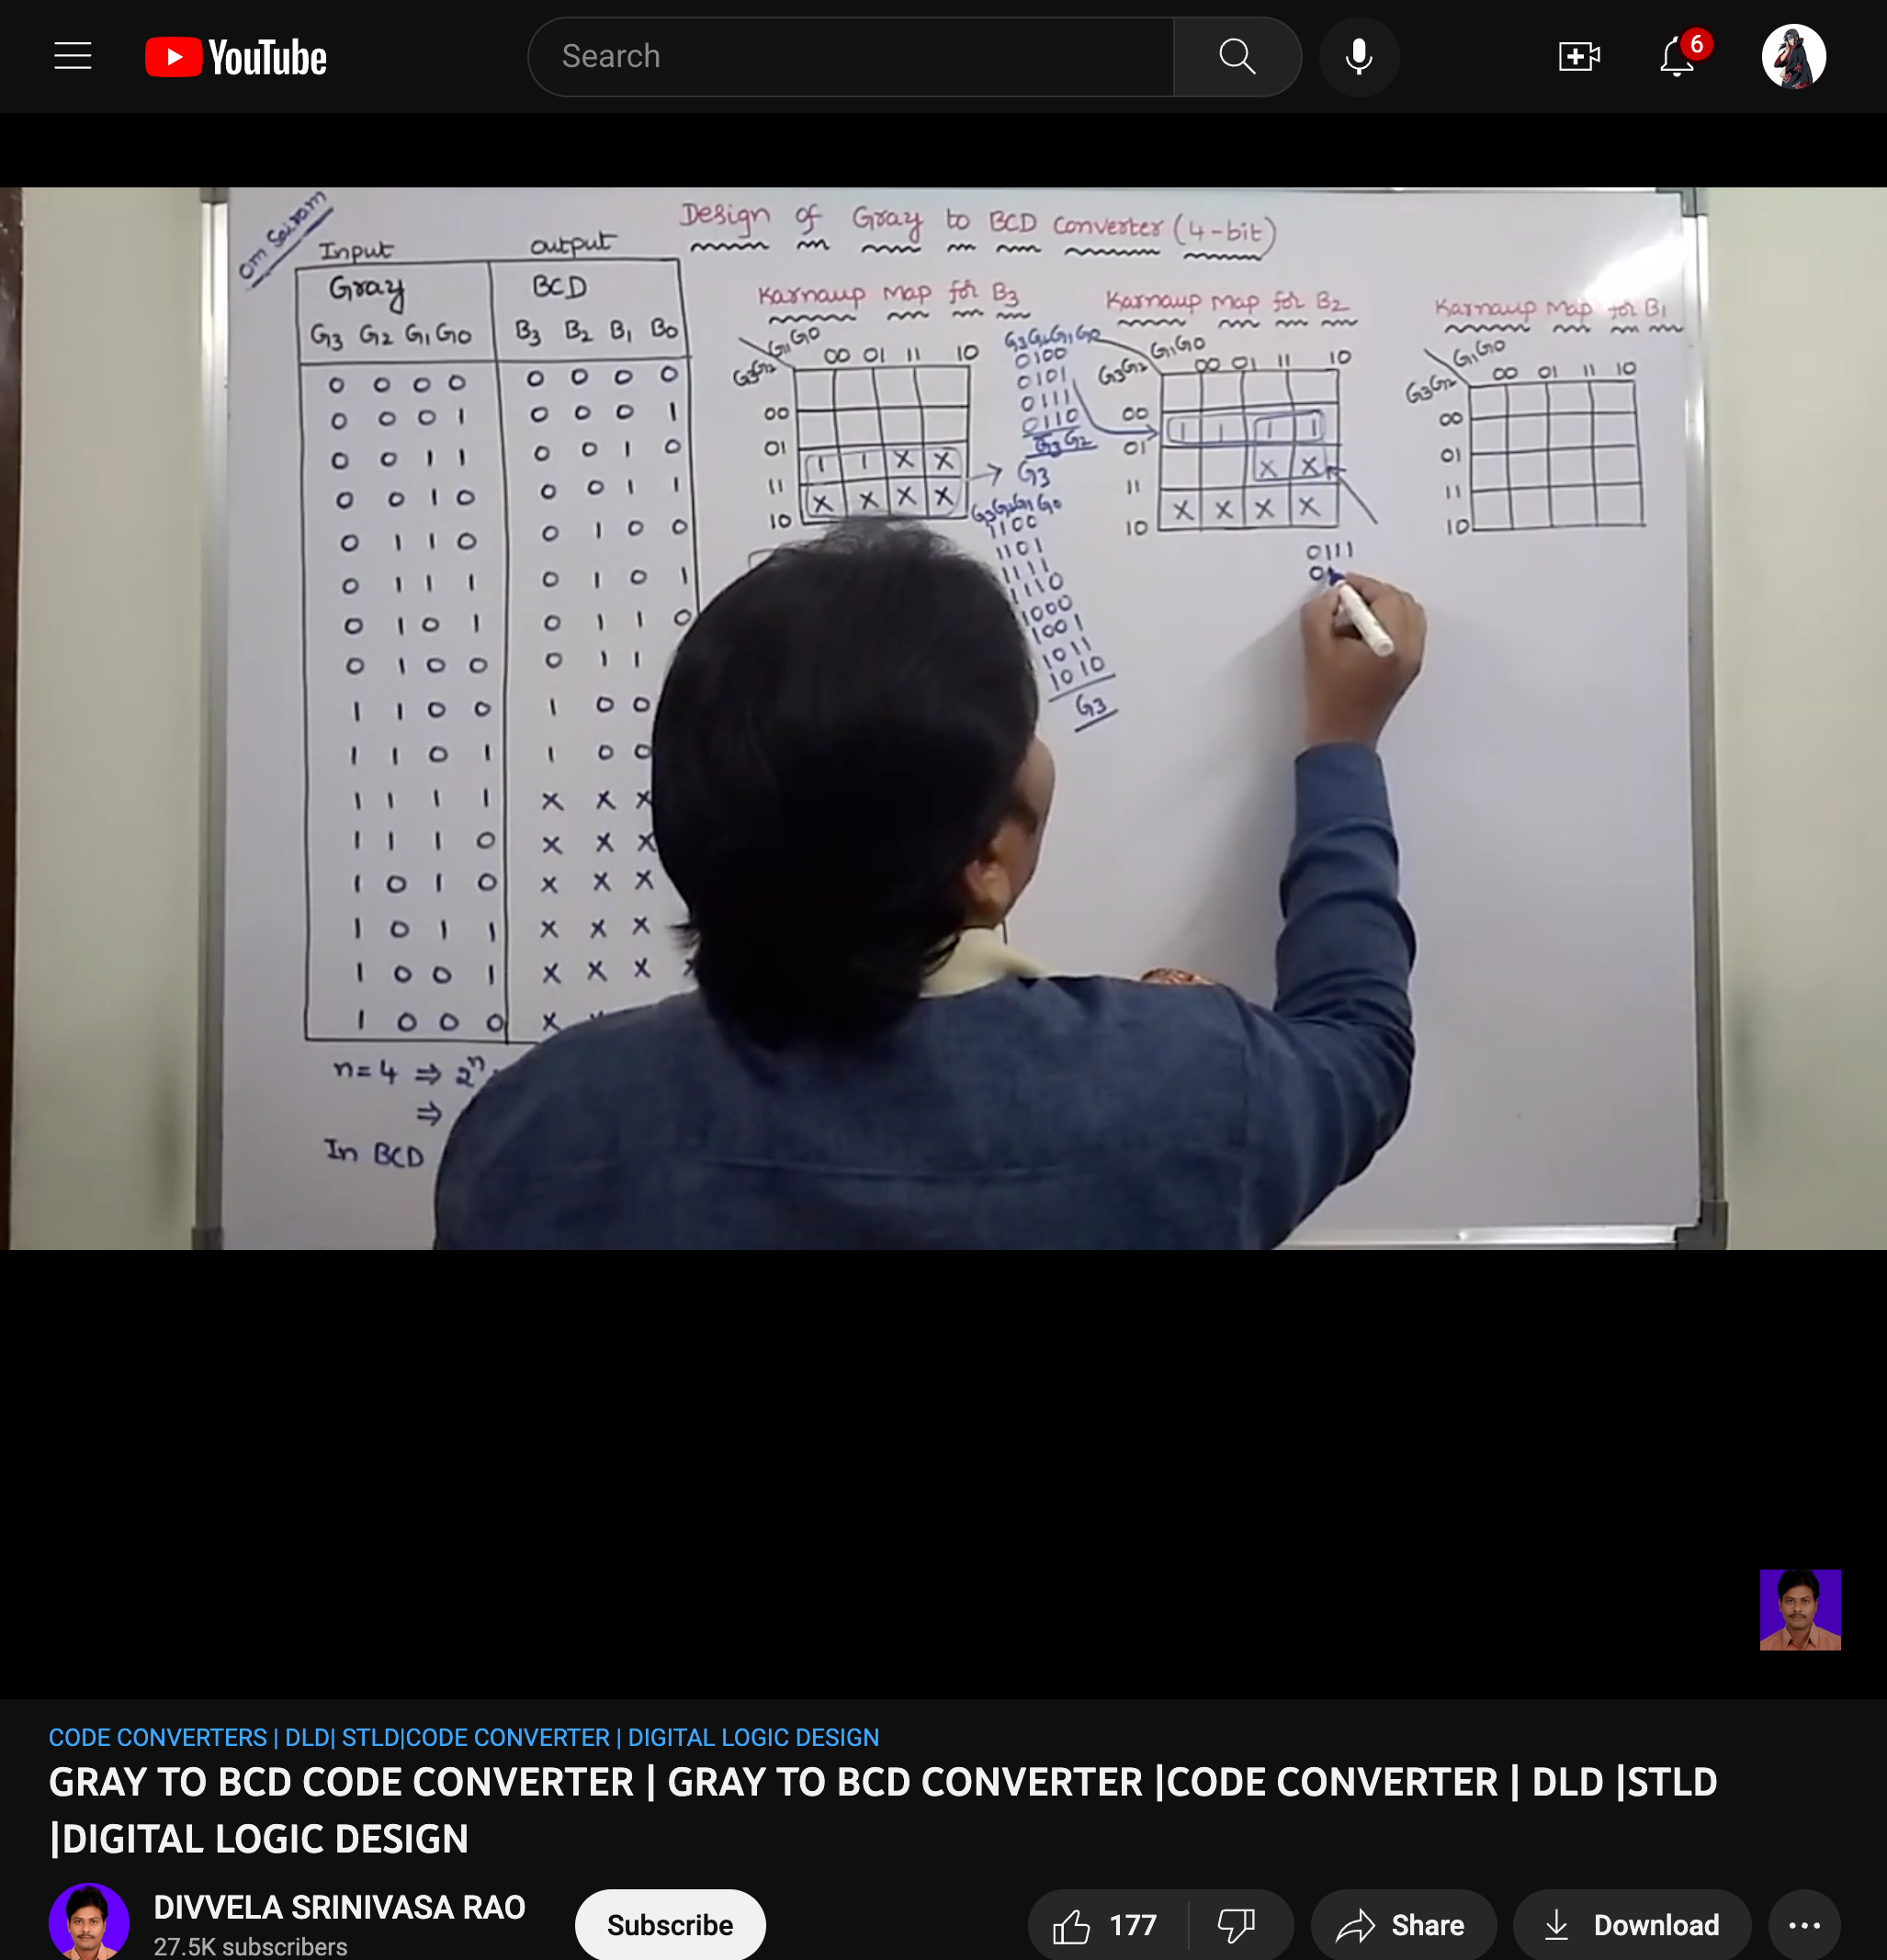 YouTube
Search
6
Om Sairam
Design of Gray to BCD Converter (4-bit)
Input Output
Gray BCD
G3 G2 G1 G0 B3 B2 B1 B0
0 0 0 0 0 0 0 0
0 0 0 1 0 0 0 1
0 0 1 1 0 0 1 0
0 0 1 0 0 0 1 1
0 1 1 0 0 1 0 0
0 1 1 1 0 1 0 1
0 1 0 1 0 1 1 0
0 1 0 0 0 1 1
1 1 0 0 1 0 0
1 1 0 1 1 0 0
1 1 1 1 X X X
1 1 1 0 X X X
1 0 1 0 X X X
1 0 1 1 X X X
1 0 0 1 X X X
1 0 0 0 X
n=4 ⇒ 2ⁿ
⇒
In BCD
Karnaup Map for B3
G1G0
G3G2 00 01 11 10
00
01
11 1 1 X X
10 X X X X
→ G3
G3G2G1G0
0100
0101
0111
0110
G3G2
G3G2G1G0
1100
1101
1111
1110
1000
1001
1011
1010
G3
Karnaup Map for B2
G1G0
G3G2 00 01 11 10
00
01 1 1 1 1
11 X X
10 X X X X
0111
0
Karnaup Map for B1
G1G0
G3G2 00 01 11 10
00
01
11
10
CODE CONVERTERS | DLD| STLD|CODE CONVERTER | DIGITAL LOGIC DESIGN
GRAY TO BCD CODE CONVERTER | GRAY TO BCD CONVERTER |CODE CONVERTER | DLD |STLD
|DIGITAL LOGIC DESIGN
DIVVELA SRINIVASA RAO
27.5K subscribers
Subscribe
177
Share
Download